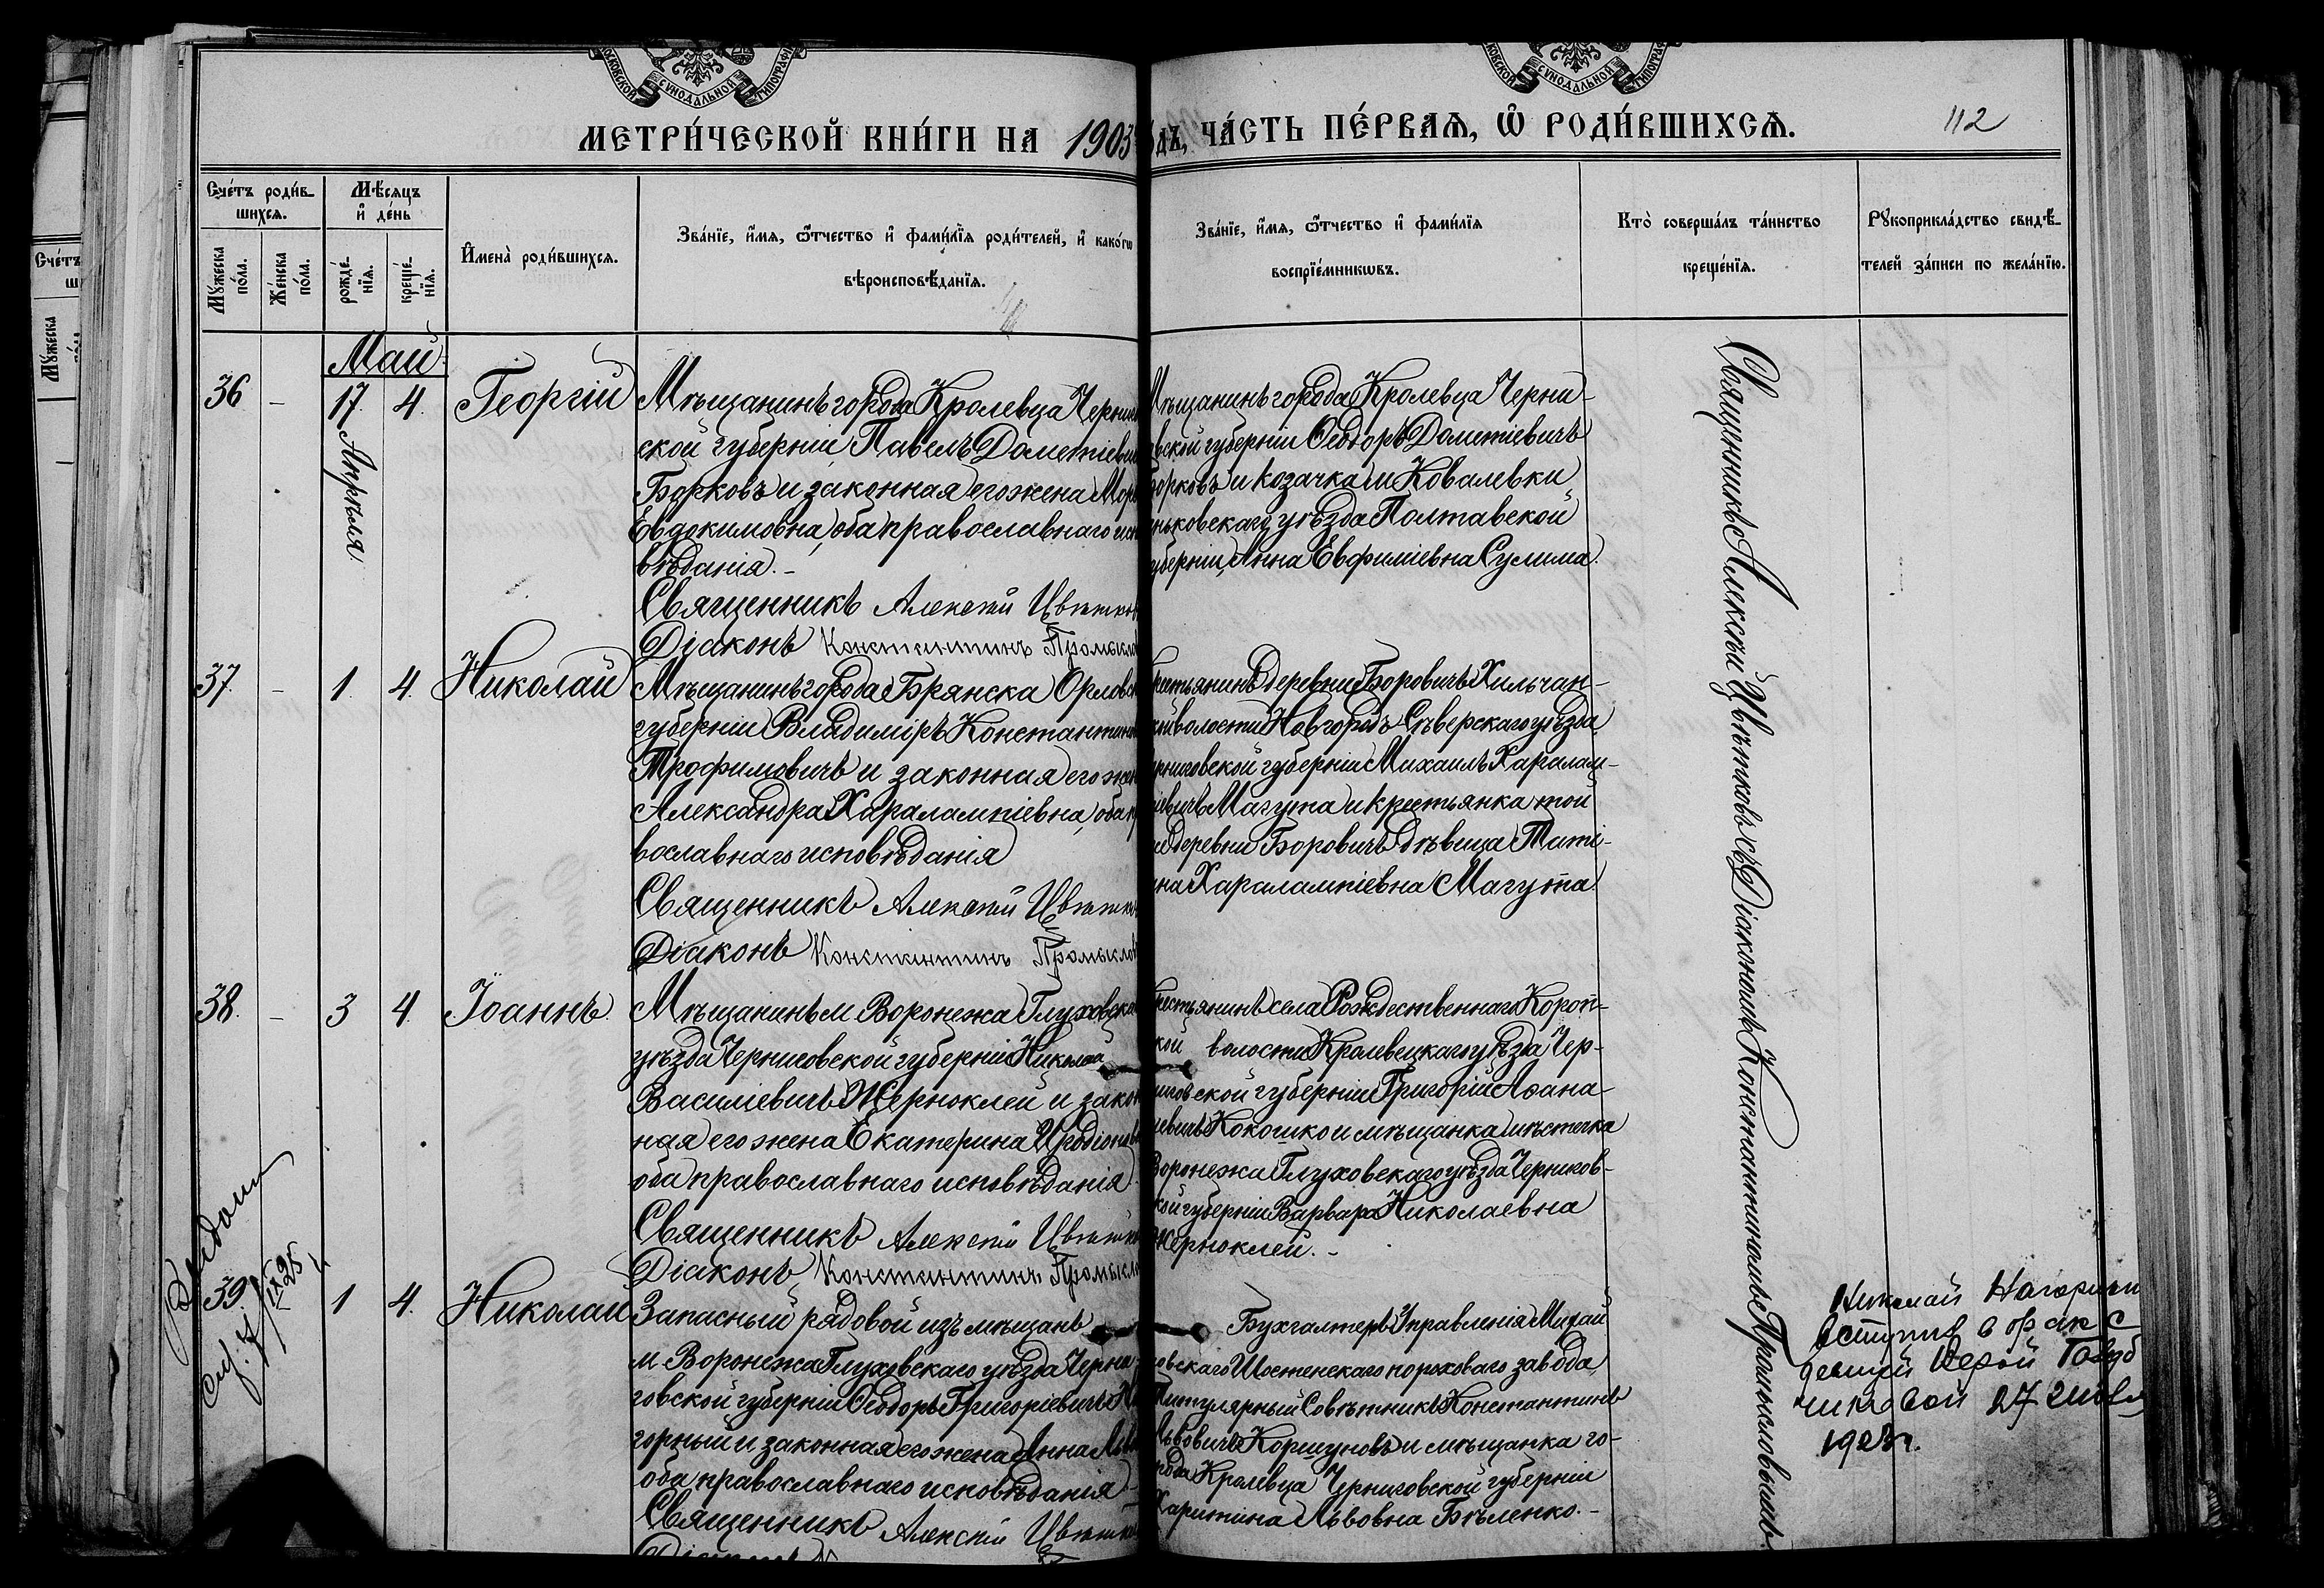 МОСКОВСКОЙ СѴНОДАЛЬНОЙ ТИПОГРАФ
МОСКОВСКОЙ СѴНОДАЛЬНОЙ ТИПОГРАФ
МЕТРИ́ЧЕСКОЙ КНИ́ГИ НА 1903
дъ, ЧА́СТЬ ПЕ́РВАѦ, Ѿ РОДИ́ВШИХСѦ.
112
Счéтъ роди́в-
шихсѧ.
Мꙋжеска
по́ла.
Же́нска
по́ла.
Мѣ́сѧцъ
и҆ де́нь
рожде́-
нїѧ.
креще́-
нїѧ.
И҆мена̀ роди́вшихсѧ.
Зва́нїе, и҆́мѧ, ѻ҆́тчество и҆ фами́лїѧ роди́телей, и҆ како́гѡ
вѣроисповѣ́данїѧ.
Зва́нїе, и҆́мѧ, ѻ҆́тчество и҆ фами́лїѧ
воспрїе́мникѡвъ.
Кто̀ соверша́лъ та́инство
креще́нїѧ.
Рꙋкоприкла́дство свидѣ́-
телей за́писи по жела́нїю.
Счéтъ
ш
Мꙋжеска
Май
36 - 17 4. Георгій
Апрѣля
Мѣщанинъ города Кролевца Черни
ской губерніи, Павелъ Дометіеви
Борковъ и законная его жена Мар
Евдокимовна, оба православнаго исп
вѣданія. -
Священникъ Алексѣй Цвѣтков
Діаконъ Константинъ Промысло
Мѣщанинъ города Кролевца Черни-
вской губерніи Ѳеодоръ Дометіевичъ
Борковъ и козачка м Ковалевки
ньковскаго уѣзда Полтавской
уберніи, Анна Евфиміевна Сулима.
37. - 1. 4. Николай
Мѣщанинъ города Брянска Орловс
губерніи Владиміръ Константино
Трофимовичъ и законная его жен
Александра Харалампіевна, оба п
вославнаго исповѣданія
Священникъ Алексѣй Цвѣтко
Діаконъ Константинъ Промыслов
рестьянинъ деревни Боровичъ Хильчан-
кой волости Новгородъ-Сѣверскаго уѣзда
рниговской губерніи Михаилъ Харалам-
іевичъ Магута и крестьянка той
е деревни Боровичъ дѣвица Тати-
на Харалампіевна Магута
38. - 3 4. Іоаннъ.
Мѣщанинъ м Воронежа Глуховска
уѣзда Черниговской губерніи Николай
Василіевичъ Жерноклей и закон
ная его жена Екатерина Иродіонов
оба православнаго исповѣданія.
Священникъ Алексѣй Цвѣтко
Діаконъ Константинъ Промысло
рестьянинъ села Рождественнаго Короп-
кой волости Кролевецкаго уѣзда Чер-
иговской губерніи Григорій Аѳана-
іевичъ Кокошко и мѣщанка мѣстечка
Воронежа Глуховскаго уѣзда Черниг­ов-
кой губерніи Варвара Николаевна
Жерноклей. -
39. 1 4. Николай
Запасный рядовой изъ мѣщанъ
м Воронежа Глуховскаго уѣзда Черни-
говской губерніи Ѳеодоръ Григоріевичъ На
горный и законная его жена Анна Льв
оба православнаго исповѣданія. -
Священникъ Алексѣй Цвѣтко
Бухгалтеръ Управленія Михай
овскаго Шостенскаго пороховаго завода,
Титулярный Совѣтникъ Константинъ
Львовичъ Коршуновъ и мѣщанка го-
рода Кролевца Черниговской губерніи
Харитина Львовна Бѣленко. -
Священникъ Алексѣй Цвѣтковъ съ Діакономъ Константиномъ Промысловымъ.
Николай Нагорный
вступив в брак с
девицей Верой
27 июля
1923 г.